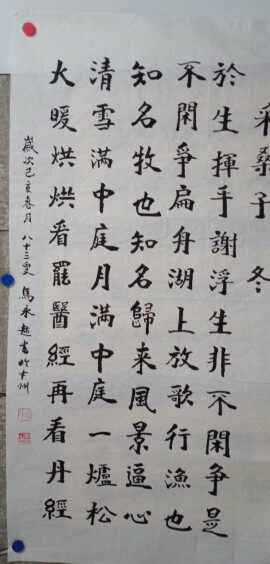 采桑子 冬
於生揮手謝浮生非不閑爭是
不閑爭扁舟湖上放歌行漁也
知名牧也知名歸来風景逼心
清雪满中庭月满中庭一爐松
火暖烘烘看罷醫經再看丹經
歲次己亥春月 八十三叟 馬永超書於州